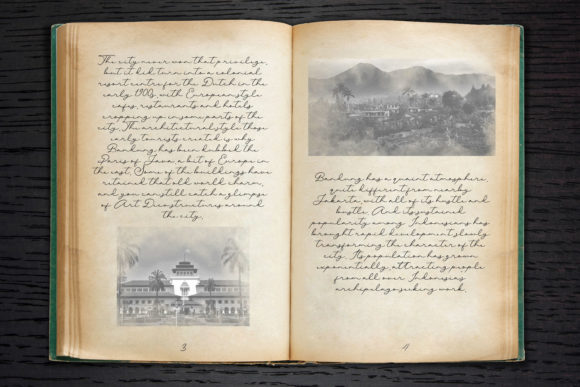 The city never won that privilege,
but it did turn into a colonial
resort centre for the Dutch in the
early 1900s, with European style
cafes, restaurants and hotels
cropping up in some parts of the
city. The architectural style those
early tourists created is why
Bandung has been dubbed the
Paris of Java, a bit of Europe in
the east. Some of the buildings have
retained that old world charm,
and you can still catch a glimpse
of Art Deco structures around
the city.
3
Bandung has a quaint atmosphere
quite different from nearby
Jakarta, with all of its hustle and
bustle. And its sustained
popularity among Indonesians has
brought rapid development slowly
transforming the character of the
city. Its population has grown
exponentially, attracting people
from all over Indonesia's
archipelago seeking work.
4